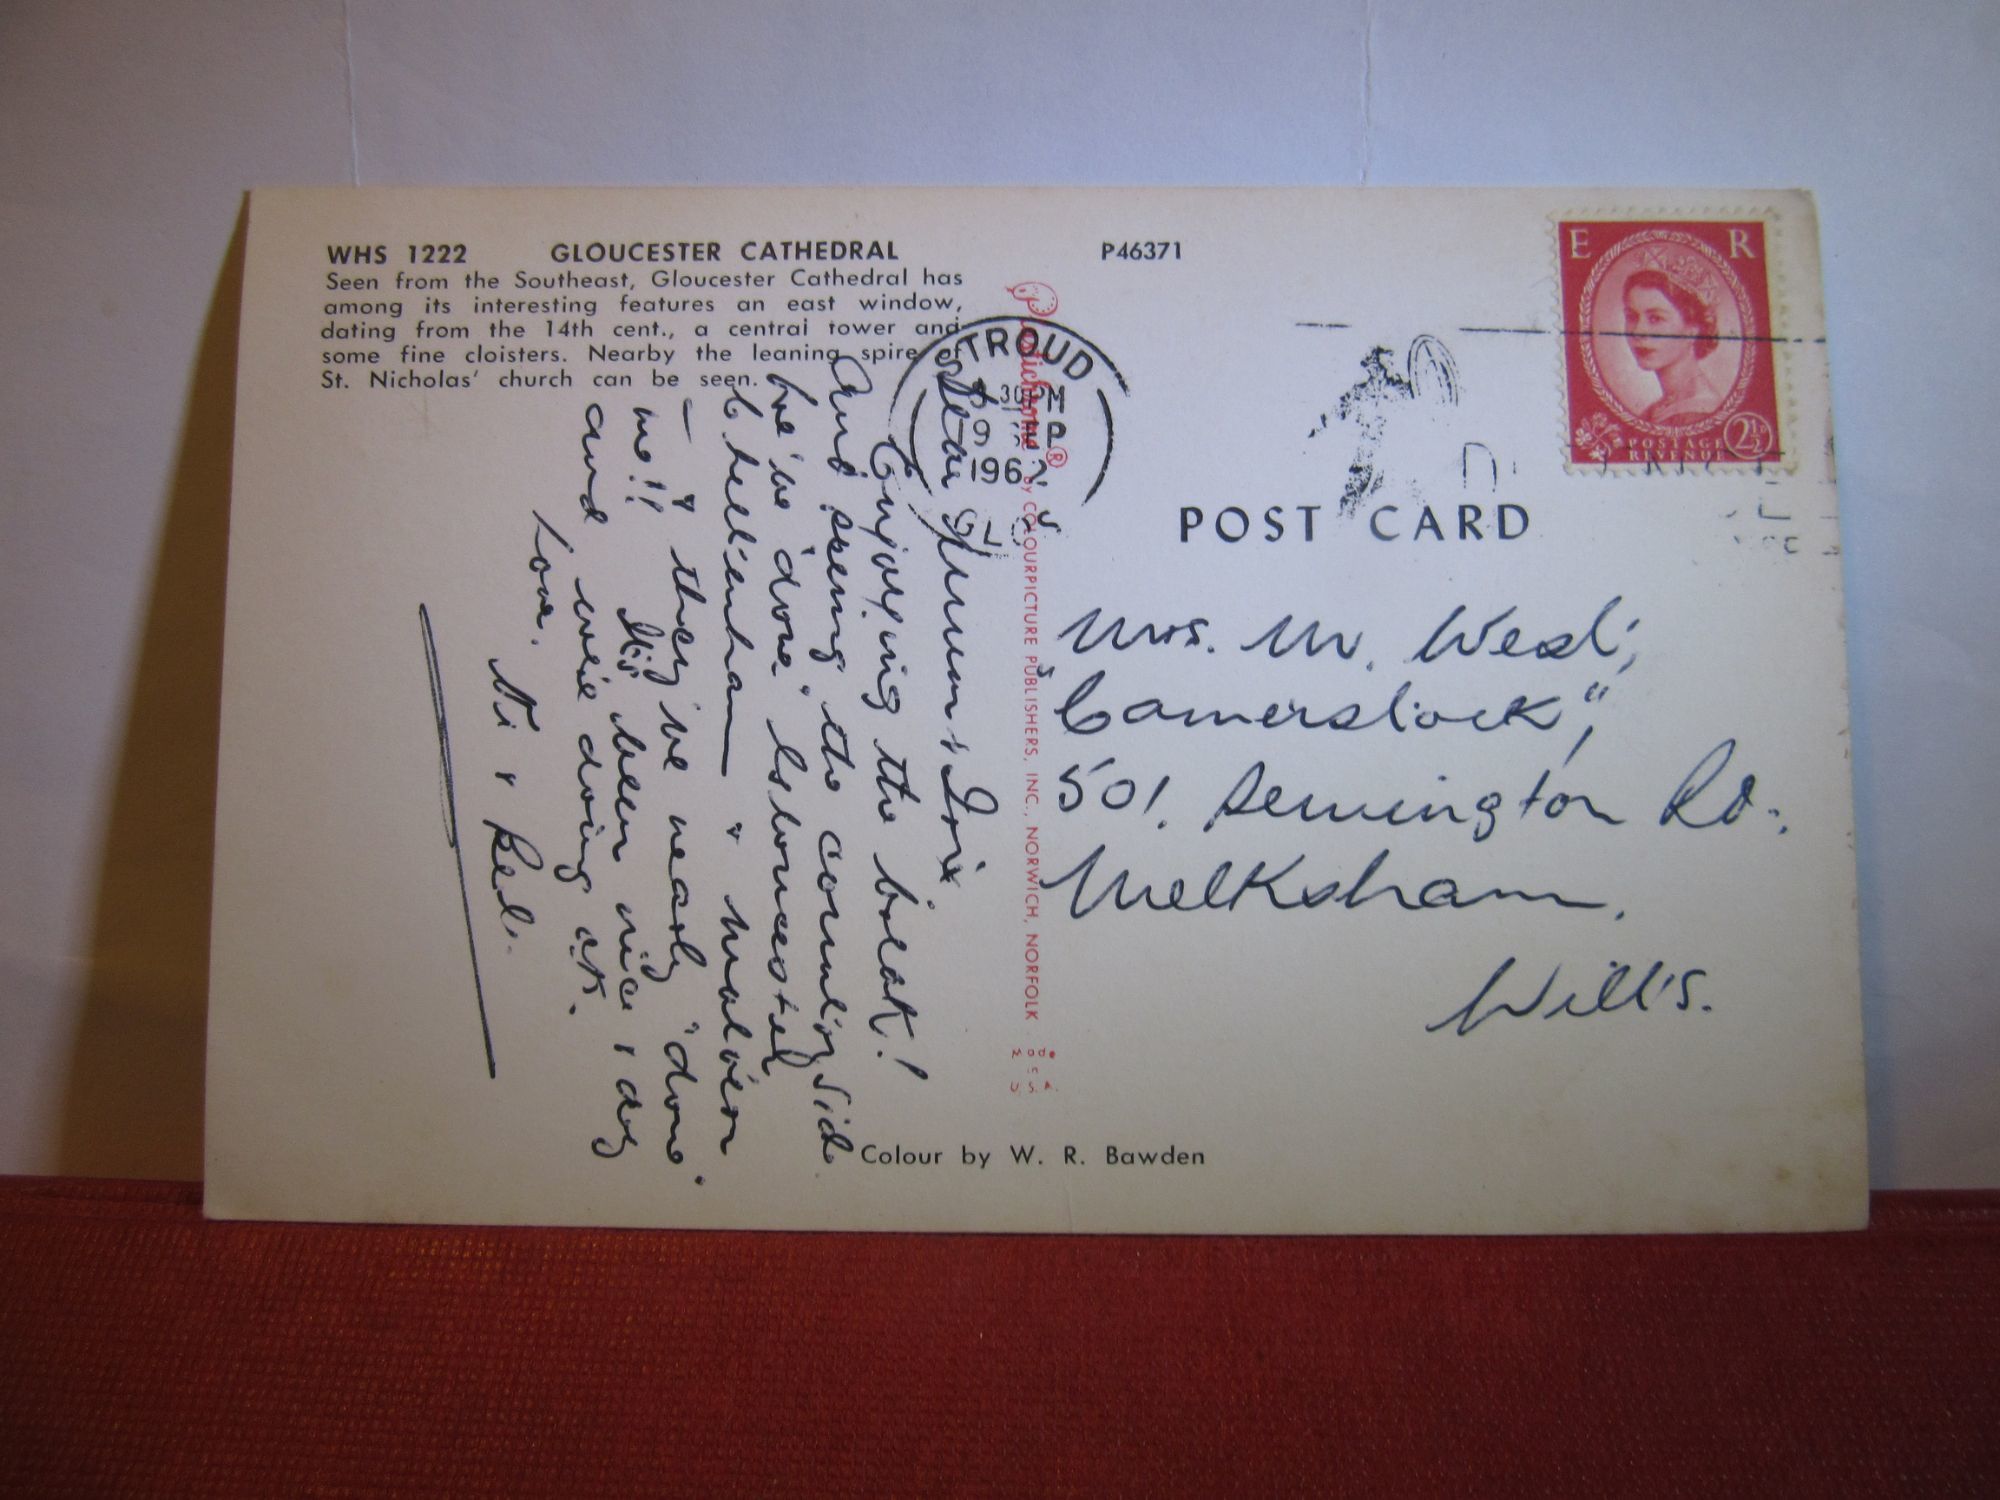 WHS 1222 GLOUCESTER CATHEDRAL
Seen from the Southeast, Gloucester Cathedral has
among its interesting features an east window,
dating from the 14th cent., a central tower and
some fine cloisters. Nearby the leaning spire of
St. Nicholas' church can be seen.
P46371
E R
POSTAGE 2½D
REVENUE
STROUD
30 PM
9
196
POST CARD
Plastichrome ® by COLOURPICTURE PUBLISHERS, INC., NORWICH, NORFOLK
U.S.A.
Dear Mum & Iris
Enjoying the break!
And seeing the country side
We've "done" Gloucester
Cheltenham & Malvern
— & they've nearly "done"
me!! It's been nice & dry
and we're doing o.k.
Love.
Vi & Bert.
Mrs. M. West,
"Camerstock",
501. Semington Rd.,
Melksham.
Wilts.
Colour by W. R. Bawden